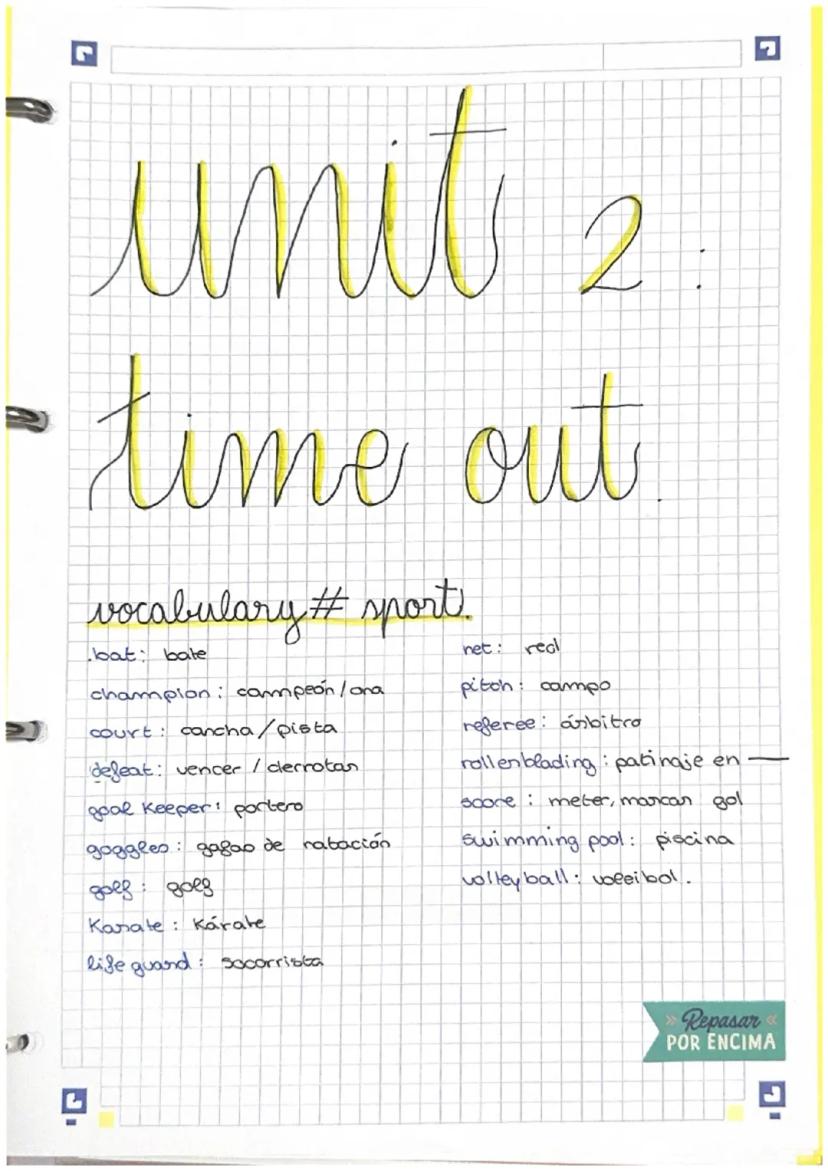 unit 2:
time out.
vocabulary # sport.
.bat: bate
champion: campeón/ona
court: cancha/pista
defeat: vencer / derrotar
goal Keeper: portero
goggles: gafas de natación
golf: golf
Karate: Kárate
life guard: socorrista
net: red
pitch: campo
referee: árbitro
rollerblading: patinaje en —
score: meter, marcar gol
swimming pool: piscina
volleyball: voleibol.
» Repasar «
POR ENCIMA